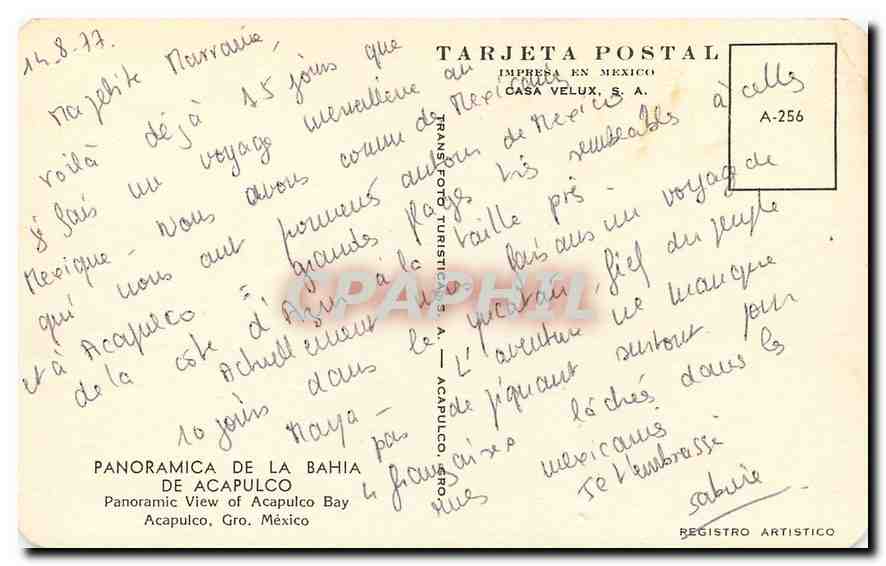 14.8.77.
Ma petite Marraine,
voilà déjà 15 jours que
je fais un voyage merveilleux au
Mexique - Nous avons connu des Mexicains
qui nous ont promenés autour de Mexico
et à Acapulco = grandes plages très semblables à celles
de la côte d'Azur à la taille près -
Actuellement nous faisons un voyage de
10 jours dans le Yucatan, fief du peuple
Maya - L'aventure ne manque
pas de piquant surtout pour
4 françaises lâchées dans les
rues mexicaines
Je t'embrasse
Sabine
TARJETA POSTAL
IMPRESA EN MEXICO
CASA VELUX, S. A.
A-256
TRANS FOTO TURISTICAS, S. A. — ACAPULCO, GRO.
CPAPHIL
PANORAMICA DE LA BAHIA
DE ACAPULCO
Panoramic View of Acapulco Bay
Acapulco, Gro. México
REGISTRO ARTISTICO